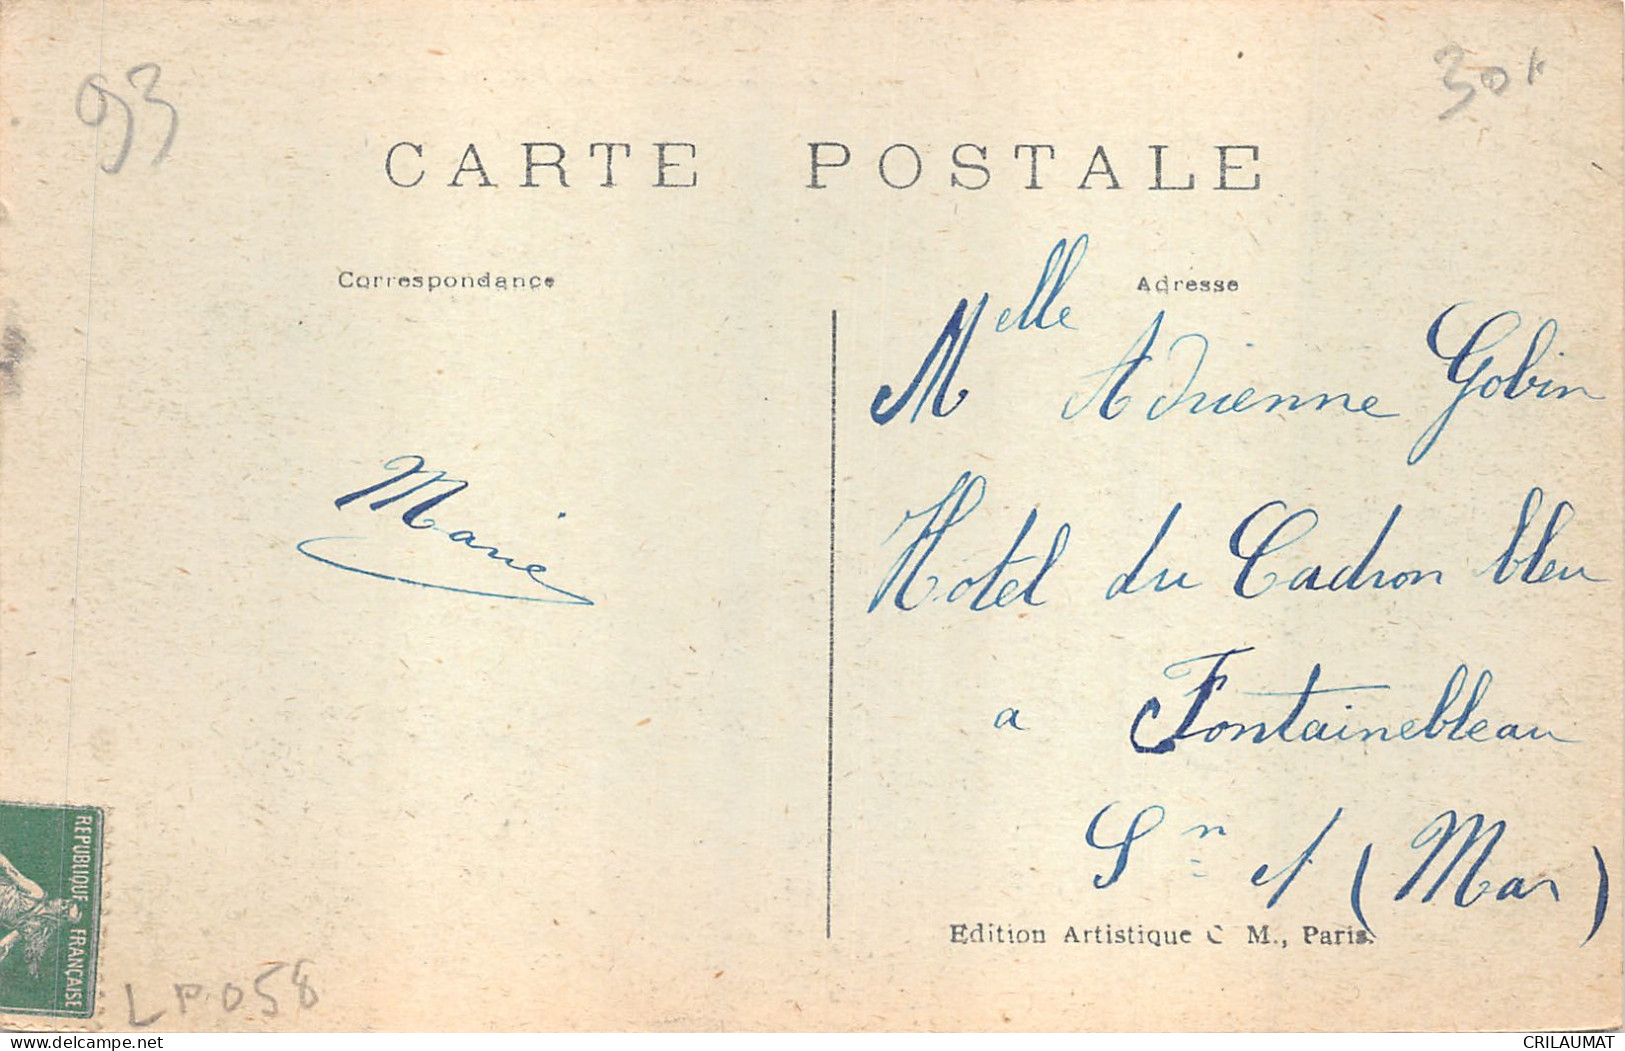 93
30F
CARTE POSTALE
Correspondance
Marie
Adresse
Melle Adrienne Gobin
Hotel du Cadron bleu
a Fontainebleau
Sn et (Mar)
Edition Artistique C M., Paris.
REPUBLIQUE FRANÇAISE
LP058
www.delcampe.net
CRILAUMAT